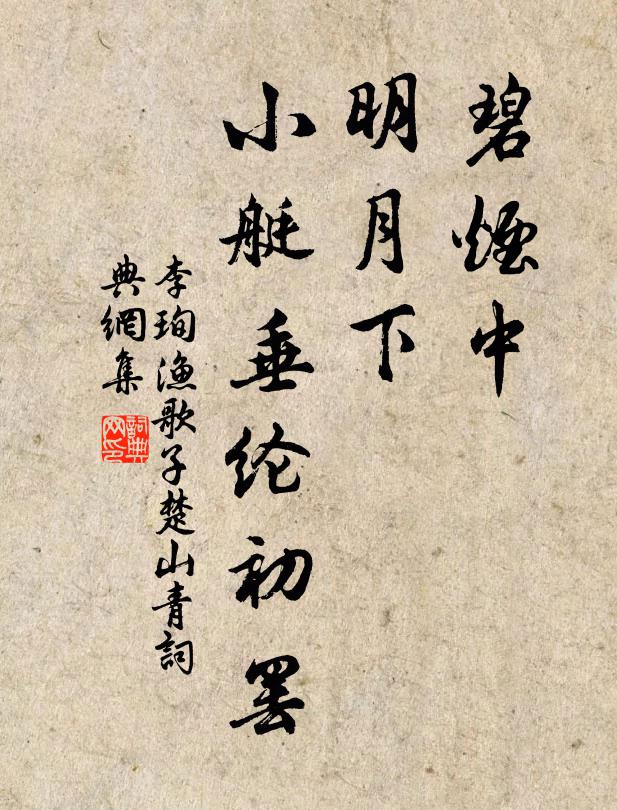 碧煙中
明月下
小艇垂纶初罢
李珣渔歌子楚山青詞
典網集
詞典
网印